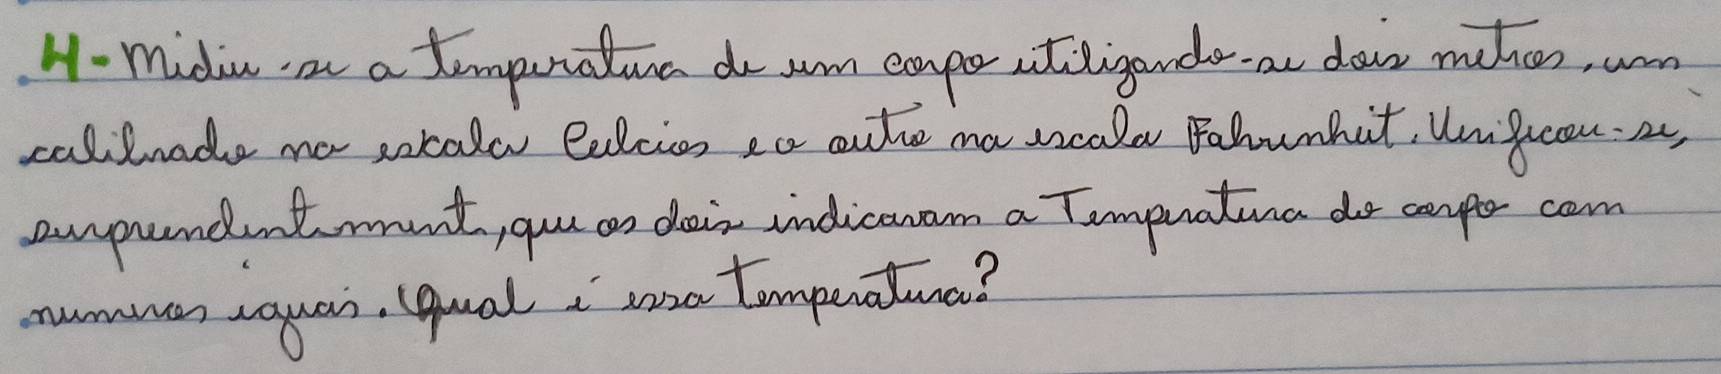 4-midiu-se a temperatura de um corpo utilizando-se dois metros, um
calibrado na escala Celcios e o outro na escala Fahrenheit. Verificou-se,
surpreendentemente, que os dois indicavam a Temperatura do corpo com
numeros iguais. Qual é essa temperatura?